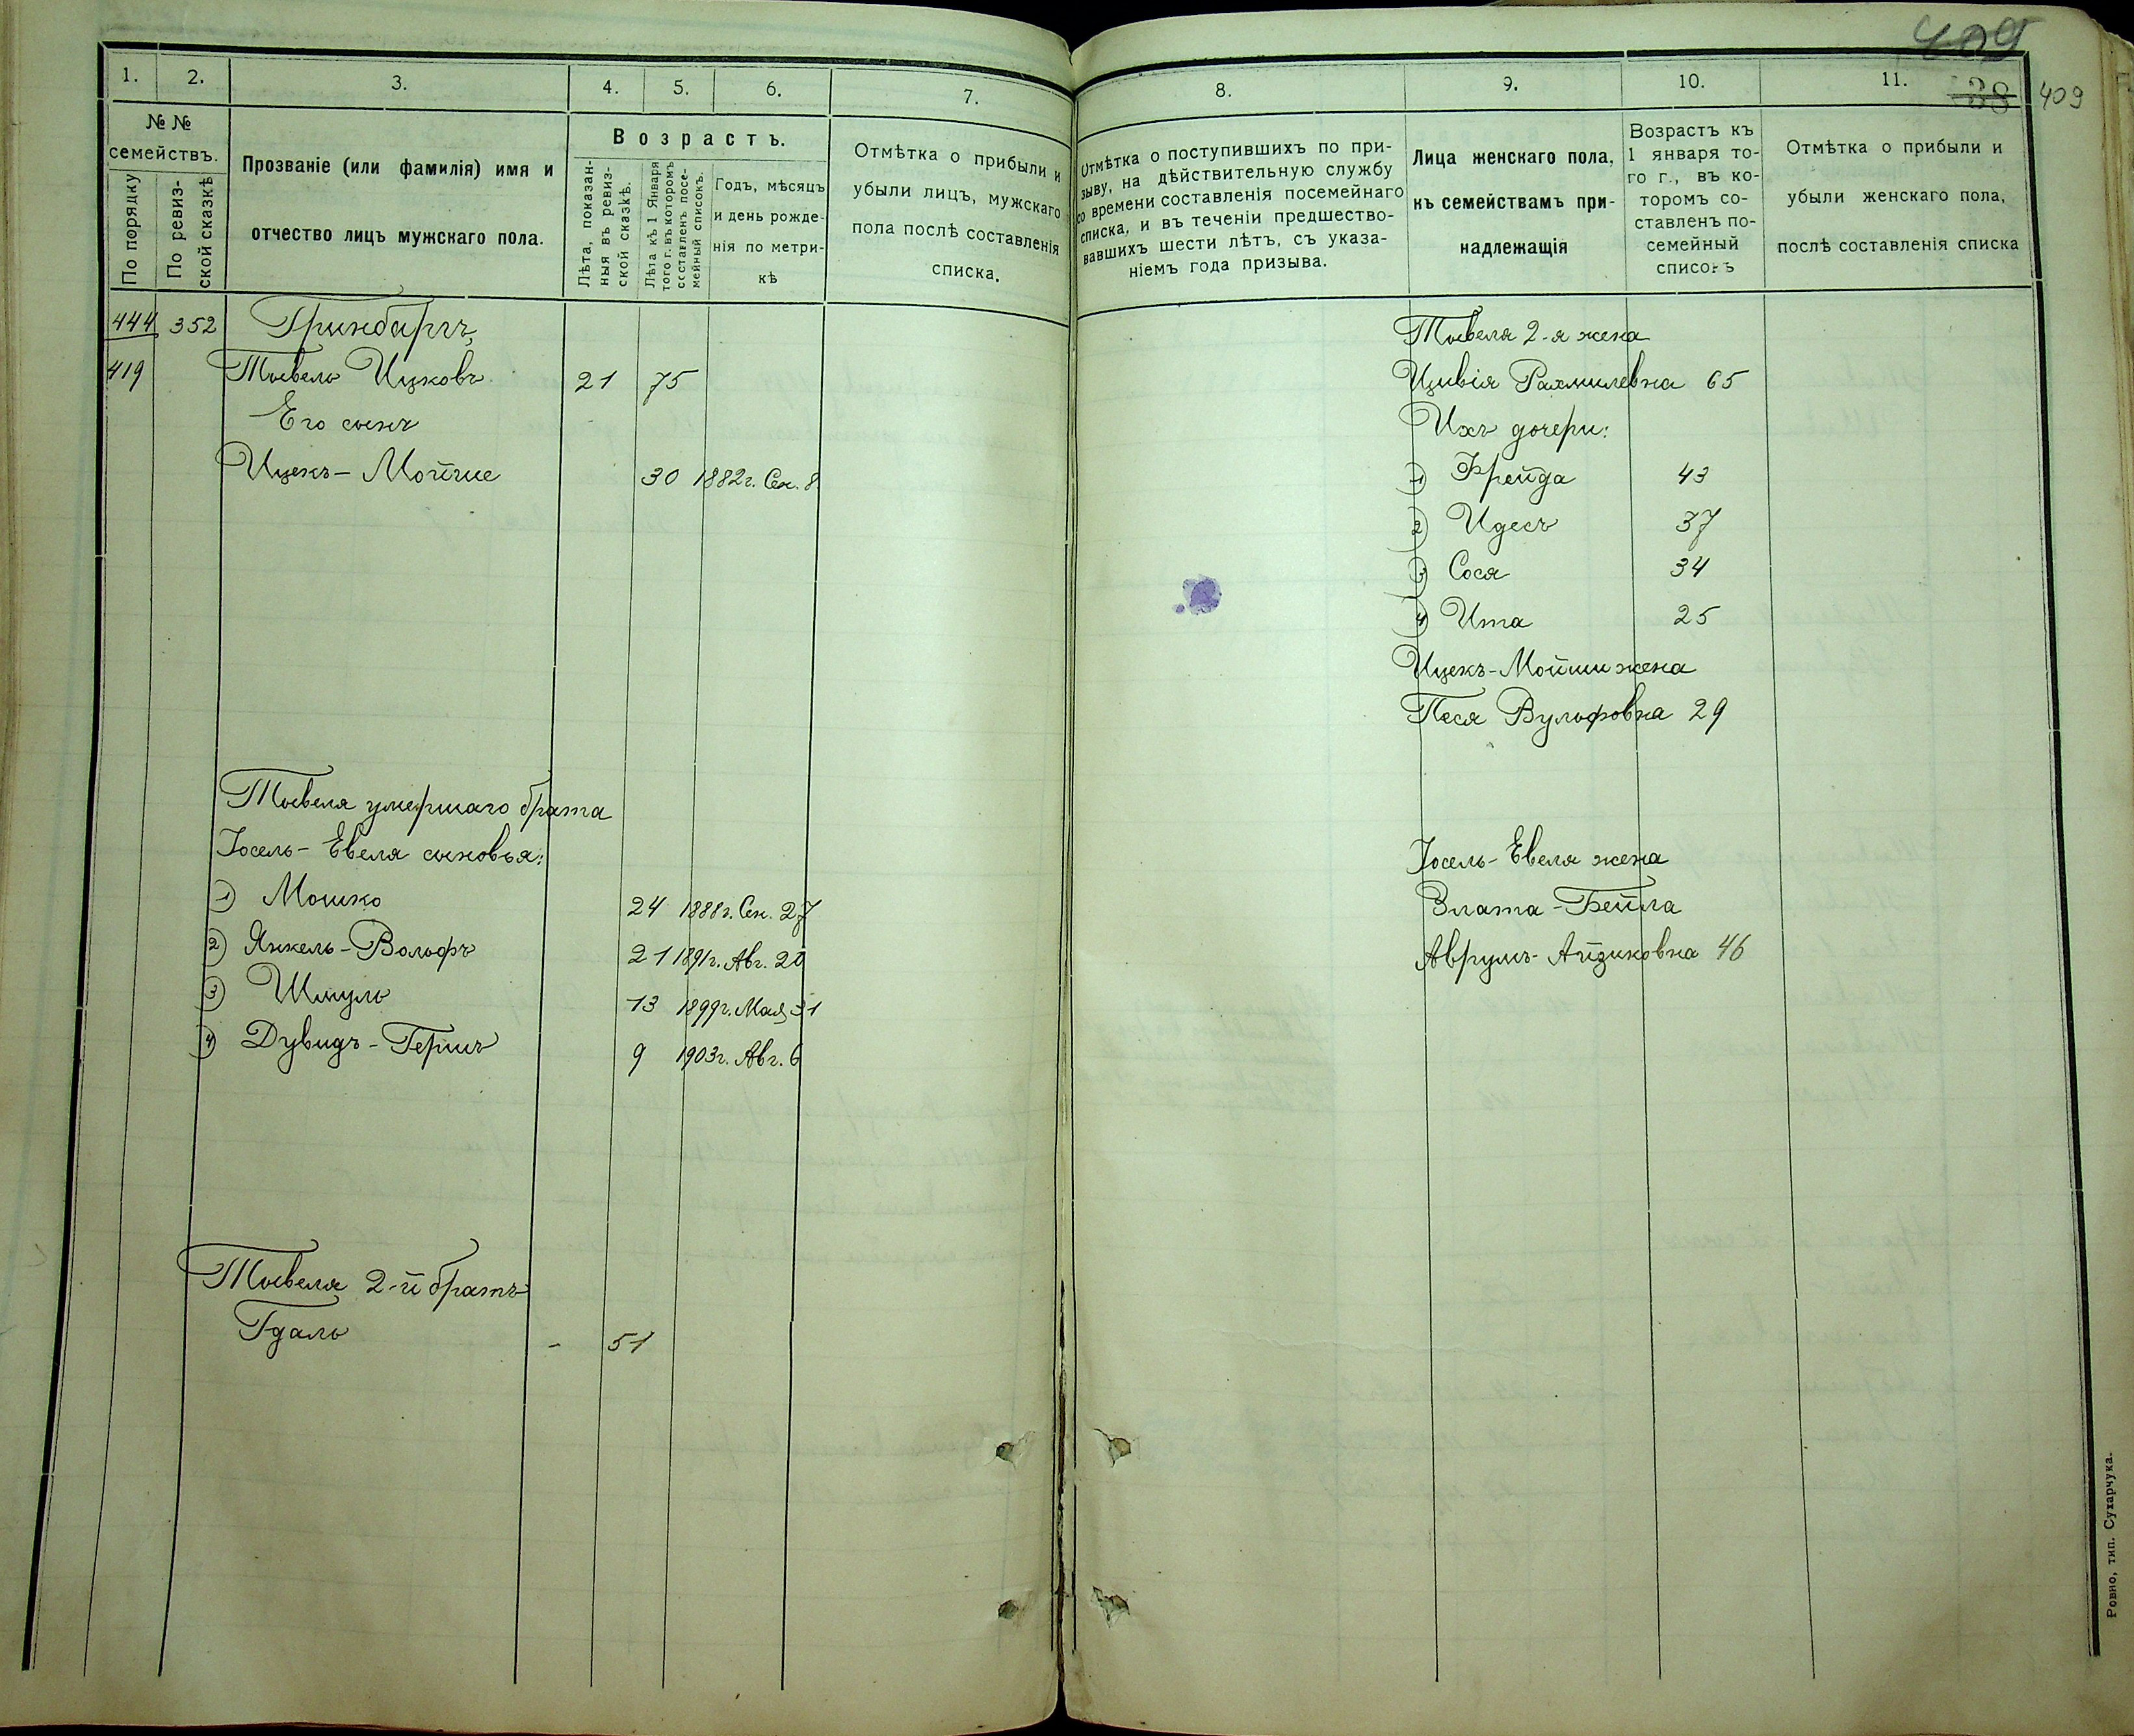 409
38 409
1. 2. 3. 4. 5. 6. 7.
№ №
семействъ.
По порядку
По ревиз-
ской сказкѣ
Прозваніе (или фамилія) имя и
отчество лицъ мужскаго пола.
Возрастъ.
Лѣта, показан-
ныя въ ревиз-
ской сказкѣ.
Лѣта къ 1 Января
того г. въ которомъ
составленъ посе-
мейный списокъ.
Годъ, мѣсяцъ
и день рожде-
нія по метри-
кѣ
Отмѣтка о прибыли и
убыли лицъ, мужскаго
пола послѣ составленія
списка.
444 352 Гринбаргъ,
419 Тывель Ицковъ 21 75
Его сынъ
Ицекъ-Мойше 30 1882г. Сен. 8
Тывеля умершаго брата
Іосель-Евеля сыновья:
1) Мошко 24 1888г. Сен. 27
2) Янкель-Вольфъ 21 1891г. Авг. 20
3) Шмуль 13 1899г. Мая 31
4) Дувидъ-Гершъ 9 1903г. Авг. 6
Тывеля 2-й братъ
Гдаль - 51
8. 9. 10. 11.
Отмѣтка о поступившихъ по при-
зыву, на дѣйствительную службу
со времени составленія посемейнаго
списка, и въ теченіи предшество-
вавшихъ шести лѣтъ, съ указа-
ніемъ года призыва.
Лица женскаго пола,
къ семействамъ при-
надлежащія
Возрастъ къ
1 января то-
го г., въ ко-
торомъ со-
ставленъ по-
семейный
списокъ
Отмѣтка о прибыли и
убыли женскаго пола,
послѣ составленія списка
Тывеля 2-я жена
Цивія Рахмилевна 65
Ихъ дочери:
1) Фрейда 43
2) Идесъ 37
3) Сося 34
4) Ита 25
Ицекъ-Мойши жена
Песя Вульфовна 29
Іосель-Евеля жена
Злата-Бейла
Аврумъ-Айзиковна 46
Ровно, тип. Сухарчука.